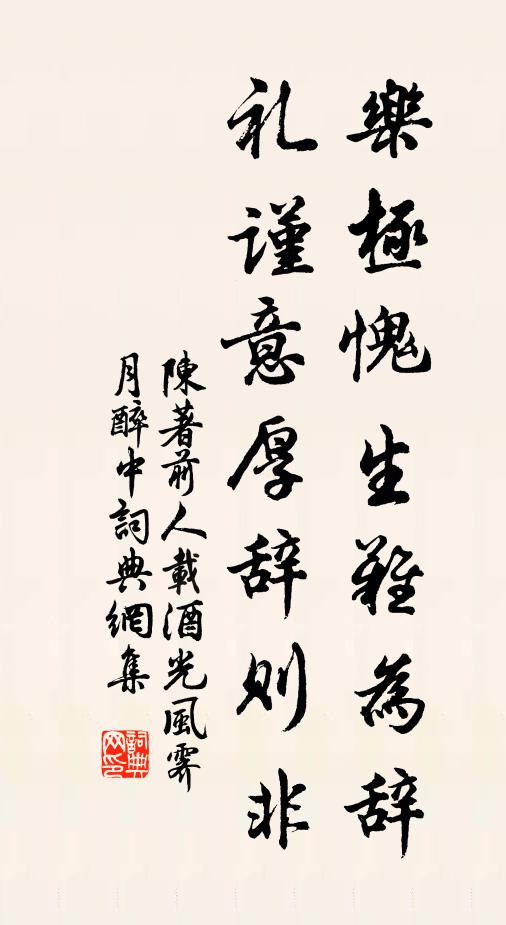 樂極愧生難為辞
礼謹意厚辞则非
陳著前人載酒光風霽
月醉中詞典網集
詞典
网印